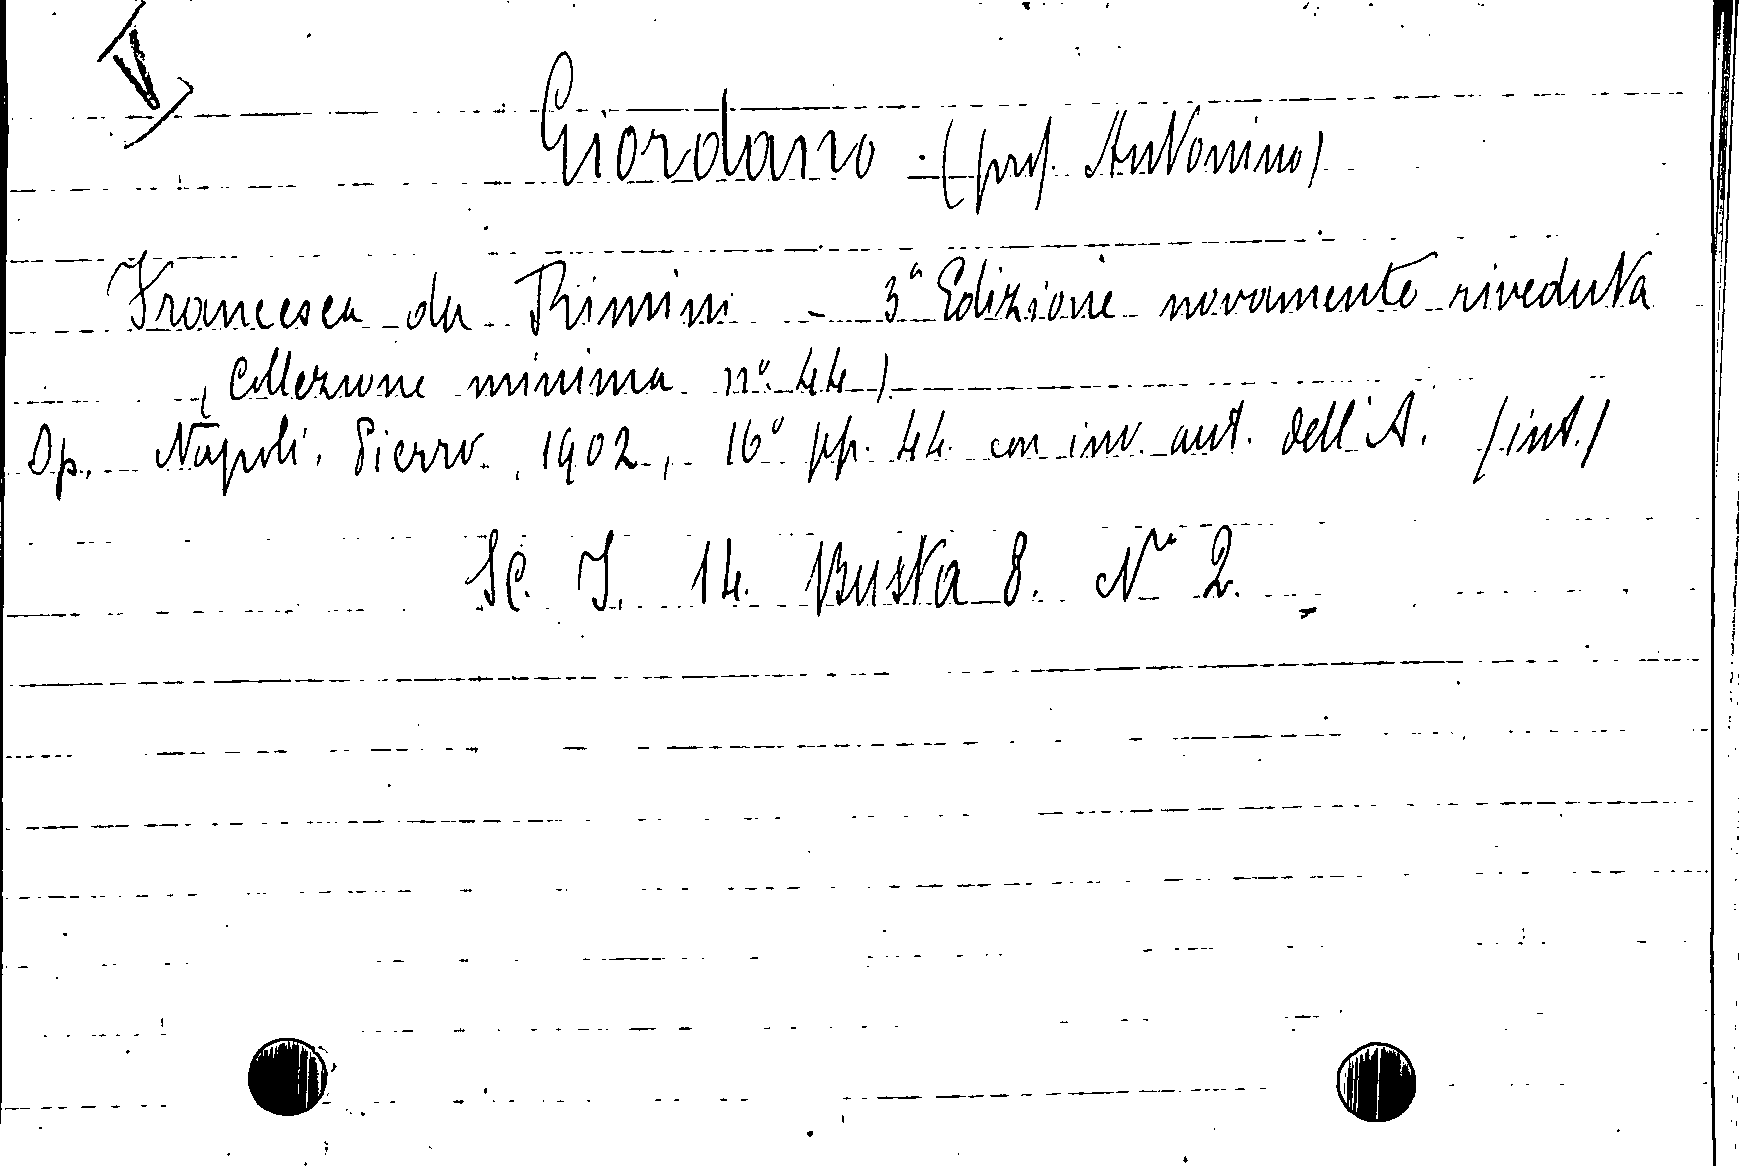 V
Giordano - (prof. Antonino)
Francesca da Rimini - 3ª Edizione novamente riveduta
(Collezione minima nº. 44)
Op. Napoli, Pierro, 1902, 16º pp. 44 con inv. aut. dell'A. (int.)
Sc. I. 14. Busta 8. Nº 2.